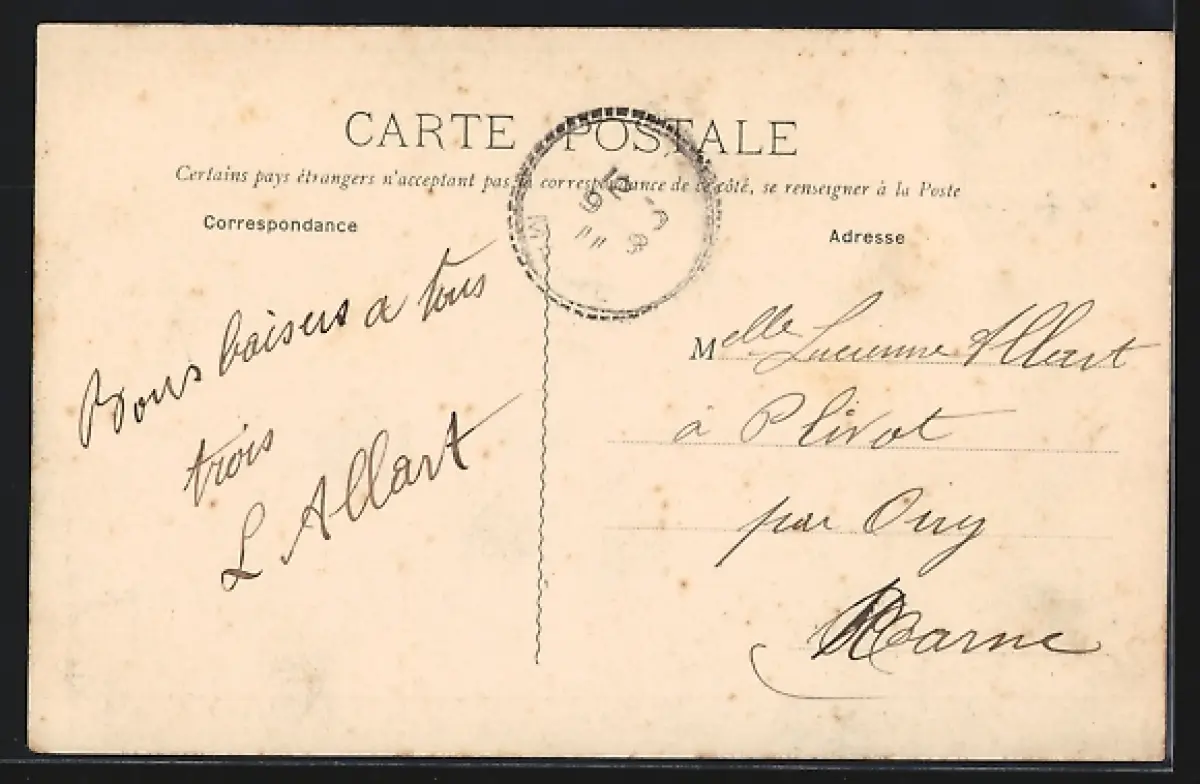 CARTE POSTALE
Certains pays étrangers n'acceptant pas la correspondance de ce côté, se renseigner à la Poste
Correspondance
Adresse
Bons baisers a tous
trois
L Allart
Melle Lucienne Allart
à Plivot
par Oiry
Marne